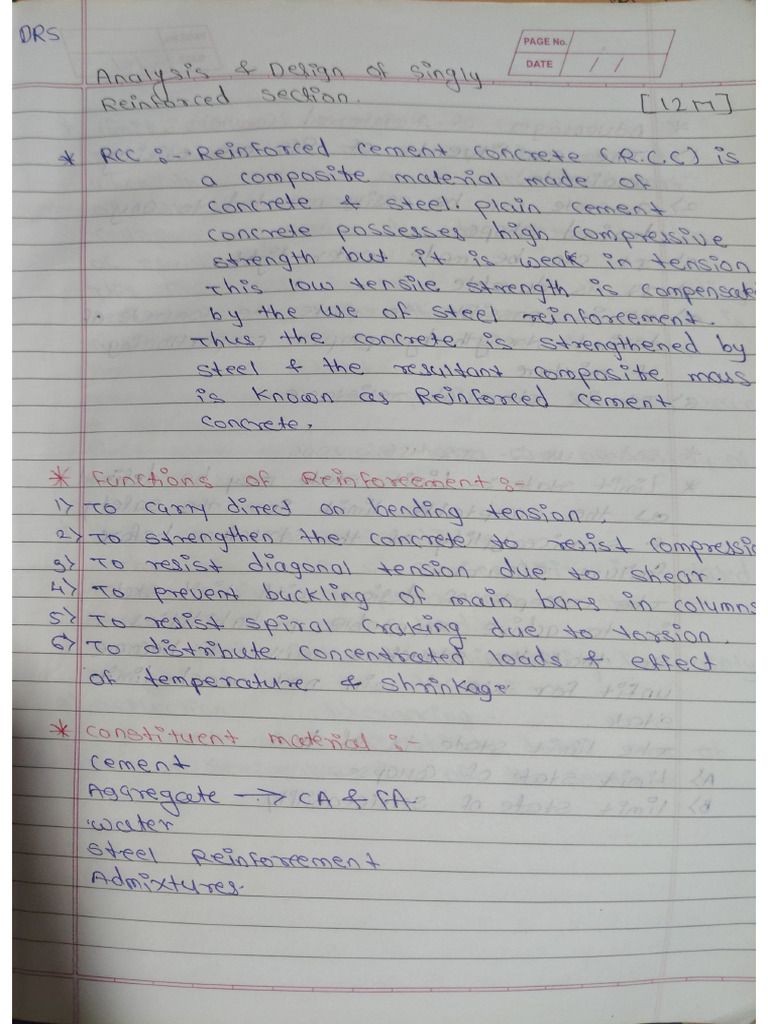 DRS
PAGE No.
DATE / /
Analysis & Design of singly
Reinforced section. [12M]
* RCC :- Reinforced cement concrete (R.C.C) is
a composite material made of
concrete & steel. plain cement
concrete possesses high compressive
strength but it is weak in tension
This low tensile strength is compensate
by the use of steel reinforcement.
Thus the concrete is strengthened by
steel & the resultant composite mass
is known as Reinforced cement
concrete.
* Functions of Reinforcement :-
1) To carry direct or bending tension.
2) To strengthen the concrete to resist compressio
3) To resist diagonal tension due to shear.
4) To prevent buckling of main bars in columns
5) To resist spiral craking due to torsion.
6) To distribute concentrated loads & effect
of temperature & shrinkage.
* Constituent material :-
Cement
Aggregate → CA & FA.
Water
Steel Reinforcement
Admixtures.